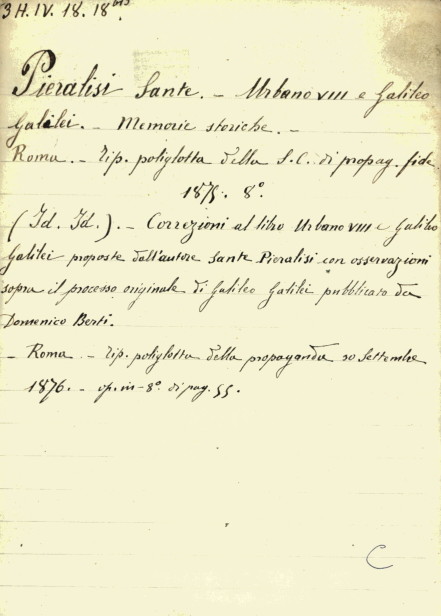 3 H. IV. 18. 18 bis
Pieralisi Sante. - Urbano VIII e Galileo
Galilei. - Memorie storiche. -
Roma. - Tip. poliglotta della S. C. di propag. fide
1875. 8°.
(Id. Id.). - Correzioni al libro Urbano VIII e Galileo
Galilei proposte dall'autore Sante Pieralisi con osservazioni
sopra il processo originale di Galileo Galilei pubblicato da
Domenico Berti.
- Roma - Tip. poliglotta della propaganda 20 Settembre
1876. - op. in-8° di pag. 55.
C